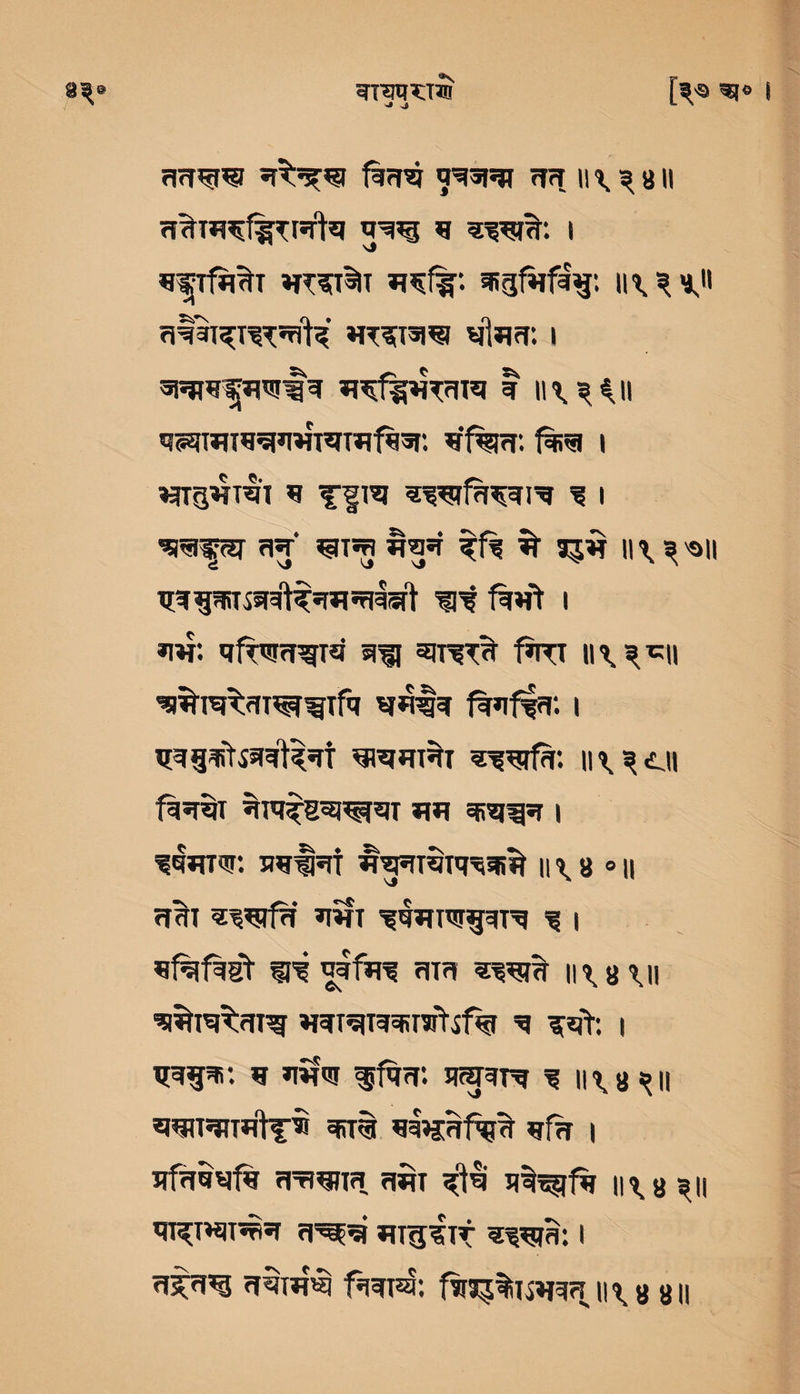 ४३० वायुपुराणे [३७ अ० ।
ततस्तस्य नरेन्द्रस्य वितथं पुत्रजन्म तत् ॥१३४॥
ततो मरुद्भिरानीय पुत्रस्तु स बृहस्पतेः ।
सङ्क्रामितो भरद्वाजो मरुद्भिः क्रतुभिर्विभुः ॥१३५॥
तत्रैवोदाहरन्तीदं भरद्वाजस्य धीमतः ।
जन्मसङ्क्रमणञ्चैव मरुद्भिर्भरताय वै ॥१३६॥
पत्न्यामासन्नगर्भायामशिजः संस्थितः किल ।
भ्रातुर्भार्यां स दृष्ट्वाथ बृहस्पतिरुवाच ह ।
अलंकृत्य तनुं स्वान्तु मैथुनं देहि मे शुभे ॥१३७॥
एवमुक्ताऽब्रवीदेनमन्तर्वत्नी ह्यहं विभो ।
गर्भः परिणतश्चायं ब्रह्म व्याहरते गिरा ॥१३८॥
अमोघरेतास्त्वञ्चापि धर्मश्चैव विगर्हितः ।
एवमुक्तोऽब्रवीदेनां स्मयमानो बृहस्पतिः ॥१३९॥
विनयो नोपदेष्टव्यस्त्वया मम कथञ्चन ।
हर्षमाणः प्रसह्यैनां मैथुनायोपचक्रमे ॥१४०॥
ततो बृहस्पतिं गर्भो हर्षमाणमुवाच ह ।
सन्निविष्टो ह्यहं पूर्वमिह तात बृहस्पते ॥१४१॥
अमोघरेताश्च भवान्नावकाशोऽस्ति च द्वयोः ।
एवमुक्तः स गर्भेण कुपितः प्रत्युवाच ह ॥१४२॥
यस्मान्मामीदृशे काले सर्वभूतेप्सिते सति ।
प्रतिषेधसि तत्तस्मात् तमो दीर्घं प्रवेक्ष्यसि ॥१४३॥
पादाभ्यान्तेन तच्छन्नं मातुर्द्वारं बृहस्पतेः ।
तद्रेतस्तु तयोर्मध्ये निवार्यः शिशुकोऽभवत् ॥१४४॥